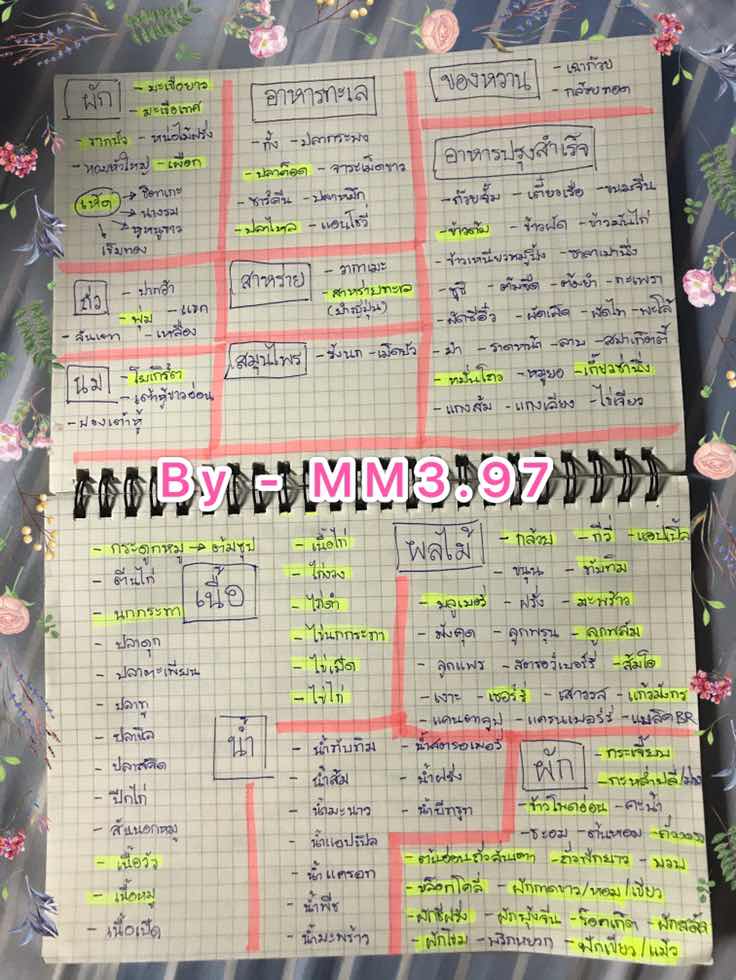 ผัก
- มะเขือยาว
- มะเขือเทศ
- รากบัว - หน่อไม้ฝรั่ง
- หอมหัวใหญ่ - เผือก
เห็ด → ชิตาเกะ
→ นางรม
→ หูหนูขาว
เข็มทอง
อาหารทะเล
- กุ้ง - ปลากระพง
- ปลาค็อด - จาระเม็ดขาว
- ซาร์ดีน - ปลาหมึก
- ปลาไหล - แอนโชวี่
ของหวาน
- เฉาก๊วย
- กล้วยทอด
อาหารปรุงสำเร็จ
- ก๋วยจั๊บ - เตี๋ยวเรือ - ขนมจีน
- ข้าวต้ม - ข้าวผัด - ข้าวมันไก่
- ข้าวเหนียวหมูปิ้ง - ซาลาเปานึ่ง
- ซูชิ - ต้มจืด - ต้มยำ - กะเพรา
- ผัดซีอิ๊ว - ผัดเผ็ด - ผัดไท - พะโล้
- ยำ - ราดหน้า - ลาบ - สปาเก็ตตี้
- หมั่นโถว - หมูยอ - เกี๊ยวซ่านึ่ง
- แกงส้ม - แกงเลียง - ไข่เจียว
ถั่ว
- ปากอ้า
- พุ่ม - แขก
- ลันเตา - เหลือง
สาหร่าย
- วากาเมะ
- สาหร่ายทะเล
(ญี่ปุ่น)
นม
- โยเกิร์ต
- เต้าหู้ขาวอ่อน
- ฟองเต้าหู้
สมุนไพร
- รังนก - เม็ดบัว
By - MM3.97
เนื้อ
- กระดูกหมู → ต้มซุป
- ตีนไก่
- นกกระทา
- ปลาดุก
- ปลาตะเพียน
- ปลาทู
- ปลานิล
- ปลาสลิด
- ปีกไก่
- สันนอกหมู
- เนื้อวัว
- เนื้อหมู
- เนื้อเป็ด
- เนื้อไก่
- ไก่งวง
- ไก่ดำ
- ไข่นกกระทา
- ไข่เป็ด
- ไข่ไก่
ผลไม้
- กล้วย - กีวี่ - แอปเปิ้ล
- ขนุน - ทับทิม
- บลูเบอรี่ - ฝรั่ง - มะพร้าว
- มังคุด - ลูกพรุน - ลูกพลัม
- ลูกแพร - สตรอว์เบอร์รี่ - ส้มโอ
- เงาะ - เชอร์รี่ - เสาวรส - แก้วมังกร
- แคนตาลูป - แครนเบอร์รี่ - แบล็คBR
น้ำ
- น้ำทับทิม - น้ำสตรอเบอรี่
- น้ำส้ม - น้ำฝรั่ง
- น้ำมะนาว - น้ำบีทรูท
- น้ำแอปเปิล
- น้ำแครอท
- น้ำพืช
- น้ำมะพร้าว
ผัก
- กระเจี๊ยบ
- กะหล่ำปลี/ม่วง
- ข้าวโพดอ่อน - คะน้า
- ชะอม - ต้นหอม - ถั่วงอก
- ต้นอ่อนถั่วลันเตา - ถั่วฝักยาว - บวบ
- บล็อกโคลี่ - ผักกาดขาว/หอม/เขียว
- ผักชีฝรั่ง - ผักบุ้งจีน - ร็อคเก็ต - ผักสลัด
- ผักโขม - พริกหยวก - ฟักเขียว/แม้ว